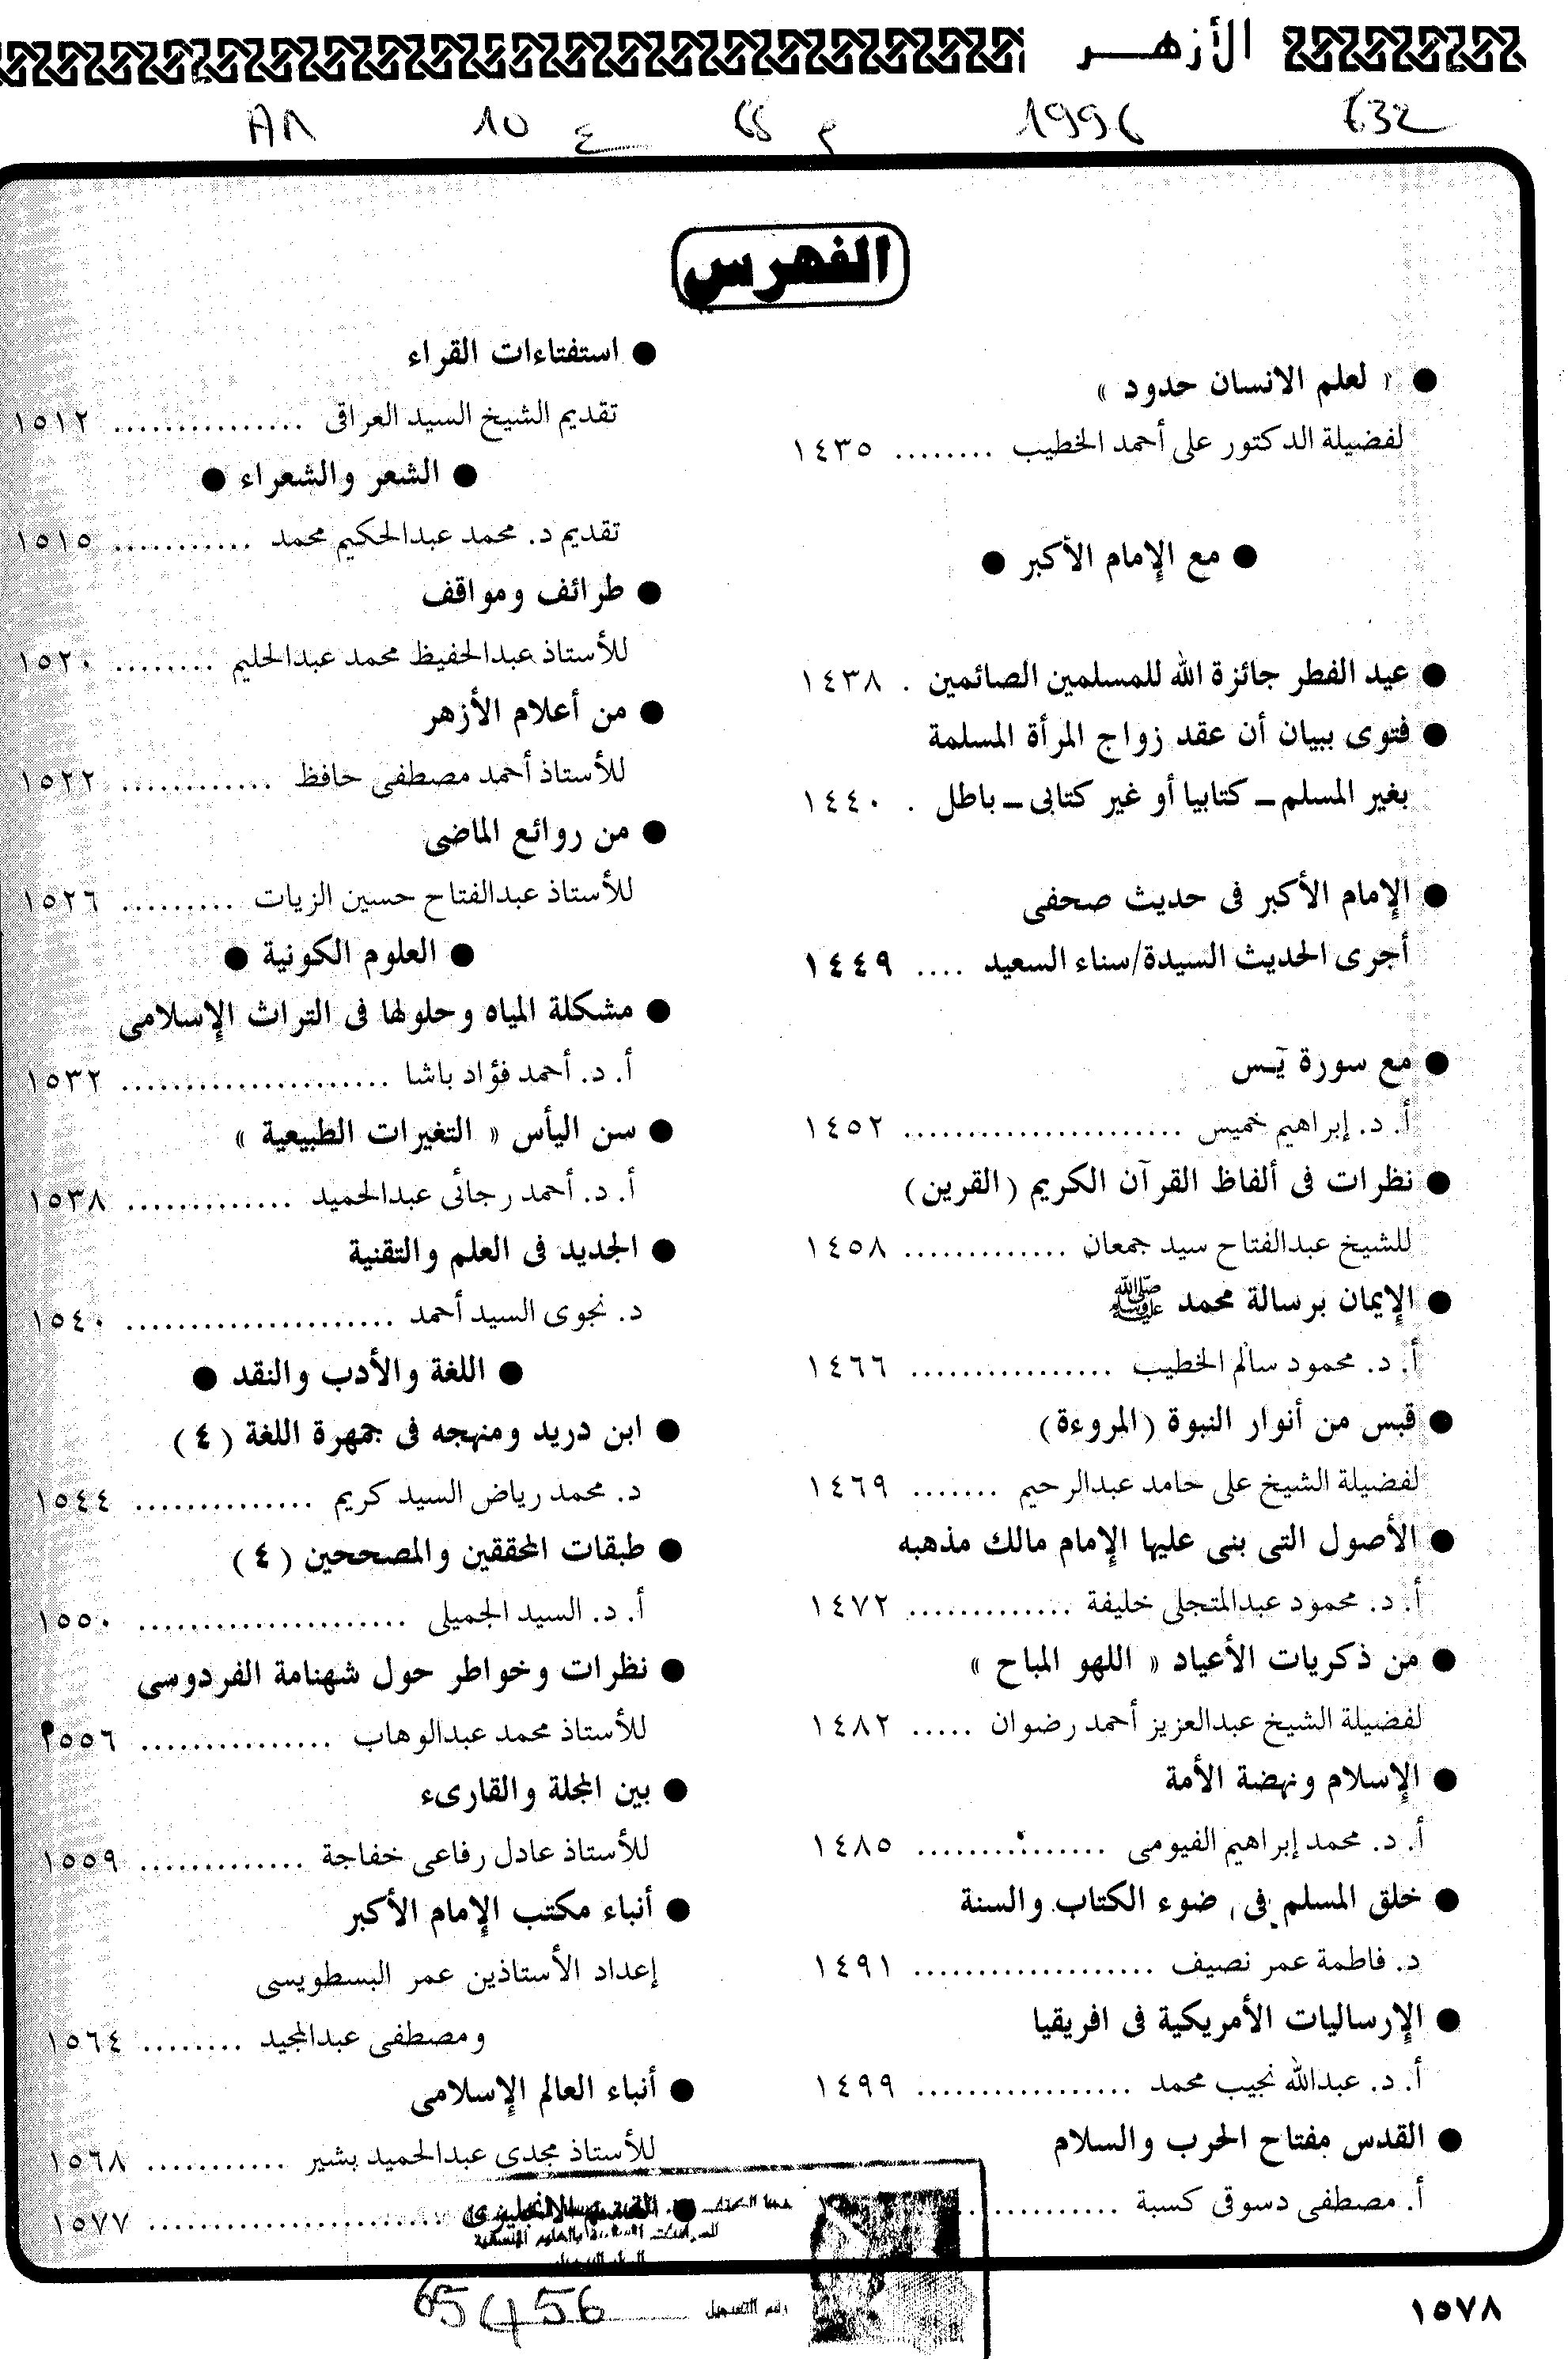 الأزهر
1996
632
10 ع
68 م
الفهرس
● « لعلم الانسان حدود »
لفضيلة الدكتور على أحمد الخطيب ........ ١٤٣٥
● مع الإمام الأكبر ●
● عيد الفطر جائزة الله للمسلمين الصائمين . ١٤٣٨
● فتوى ببيان أن عقد زواج المرأة المسلمة
بغير المسلم ـ كتابيا أو غير كتابى ـ باطل . ١٤٤٠
● الإمام الأكبر فى حديث صحفى
أجرى الحديث السيدة/سناء السعيد .... ١٤٤٩
● مع سورة يَس
أ. د. إبراهيم خميس ...................... ١٤٥٢
● نظرات فى ألفاظ القرآن الكريم (القرين)
للشيخ عبدالفتاح سيد جمعان ............. ١٤٥٨
● الإيمان برسالة محمد ﷺ
أ. د. محمود سالم الخطيب ................ ١٤٦٦
● قبس من أنوار النبوة (المروءة)
لفضيلة الشيخ على حامد عبدالرحيم ....... ١٤٦٩
● الأصول التى بنى عليها الإمام مالك مذهبه
أ. د. محمود عبدالمتجلى خليفة ............. ١٤٧٢
● من ذكريات الأعياد « اللهو المباح »
لفضيلة الشيخ عبدالعزيز أحمد رضوان ..... ١٤٨٢
● الإسلام ونهضة الأمة
أ. د. محمد إبراهيم الفيومى ............... ١٤٨٥
● خلق المسلم فى ضوء الكتاب والسنة
د. فاطمة عمر نصيف ................... ١٤٩١
● الإرساليات الأمريكية فى افريقيا
أ. د. عبدالله نجيب محمد ................. ١٤٩٩
● القدس مفتاح الحرب والسلام
أ. مصطفى دسوقى كسبة .............
● استفتاءات القراء
تقديم الشيخ السيد العراقى ............... ١٥١٢
● الشعر والشعراء ●
تقديم د. محمد عبدالحكيم محمد ........... ١٥١٥
● طرائف ومواقف
للأستاذ عبدالحفيظ محمد عبدالحليم ........ ١٥٢٠
● من أعلام الأزهر
للأستاذ أحمد مصطفى حافظ ............ ١٥٢٢
● من روائع الماضى
للأستاذ عبدالفتاح حسين الزيات ......... ١٥٢٦
● العلوم الكونية ●
● مشكلة المياه وحلولها فى التراث الإسلامى
أ. د. أحمد فؤاد باشا ..................... ١٥٣٢
● سن اليأس « التغيرات الطبيعية »
أ. د. أحمد رجائى عبدالحميد ............. ١٥٣٨
● الجديد فى العلم والتقنية
د. نجوى السيد أحمد ..................... ١٥٤٠
● اللغة والأدب والنقد ●
● ابن دريد ومنهجه فى جمهرة اللغة (٤)
د. محمد رياض السيد كريم .............. ١٥٤٤
● طبقات المحققين والمصححين (٤)
أ. د. السيد الجميلى ..................... ١٥٥٠
● نظرات وخواطر حول شهنامة الفردوسى
للأستاذ محمد عبدالوهاب ............... ١٥٥٦
● بين المجلة والقارىء
للأستاذ عادل رفاعى خفاجة ............. ١٥٥٩
● أنباء مكتب الإمام الأكبر
إعداد الأستاذين عمر البسطويسى
ومصطفى عبدالمجيد ........ ١٥٦٤
● أنباء العالم الإسلامى
للأستاذ مجدى عبدالحميد بشير ........... ١٥٦٨
● القسم الانجليزى ....................... ١٥٧٧
رقم التسجيل 65456
١٥٧٨